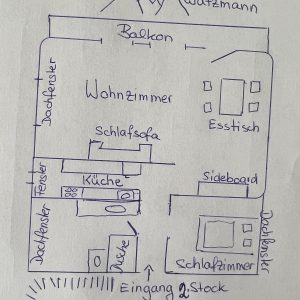 Watzmann
Balkon
Dachfenster
Wohnzimmer
Esstisch
Schlafsofa
Fenster
Küche
Sideboard
Dachfenster
Dusche
Schlafzimmer
Dachfenster
Eingang 2. Stock